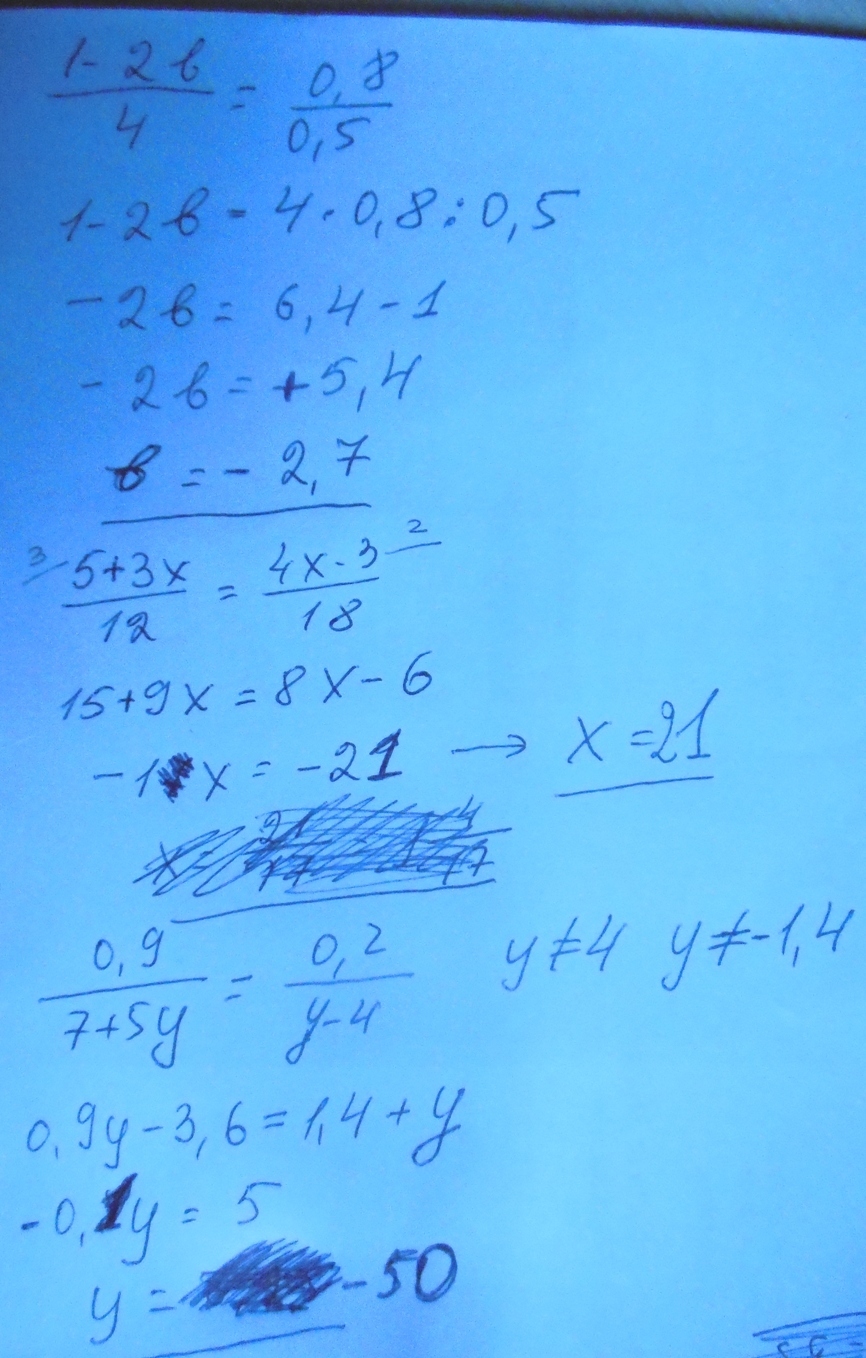 1-2в/4 = 0,8/0,5
1-2в = 4·0,8:0,5
-2в = 6,4-1
-2в = +5,4
в = -2,7
3 5+3x/12 = 4x-3/18 2
15+9x = 8x-6
-1x = -21 → x = 21
0,9/7+5y = 0,2/y-4 y≠4 y≠-1,4
0,9y-3,6 = 1,4+y
-0,1y = 5
y = -50